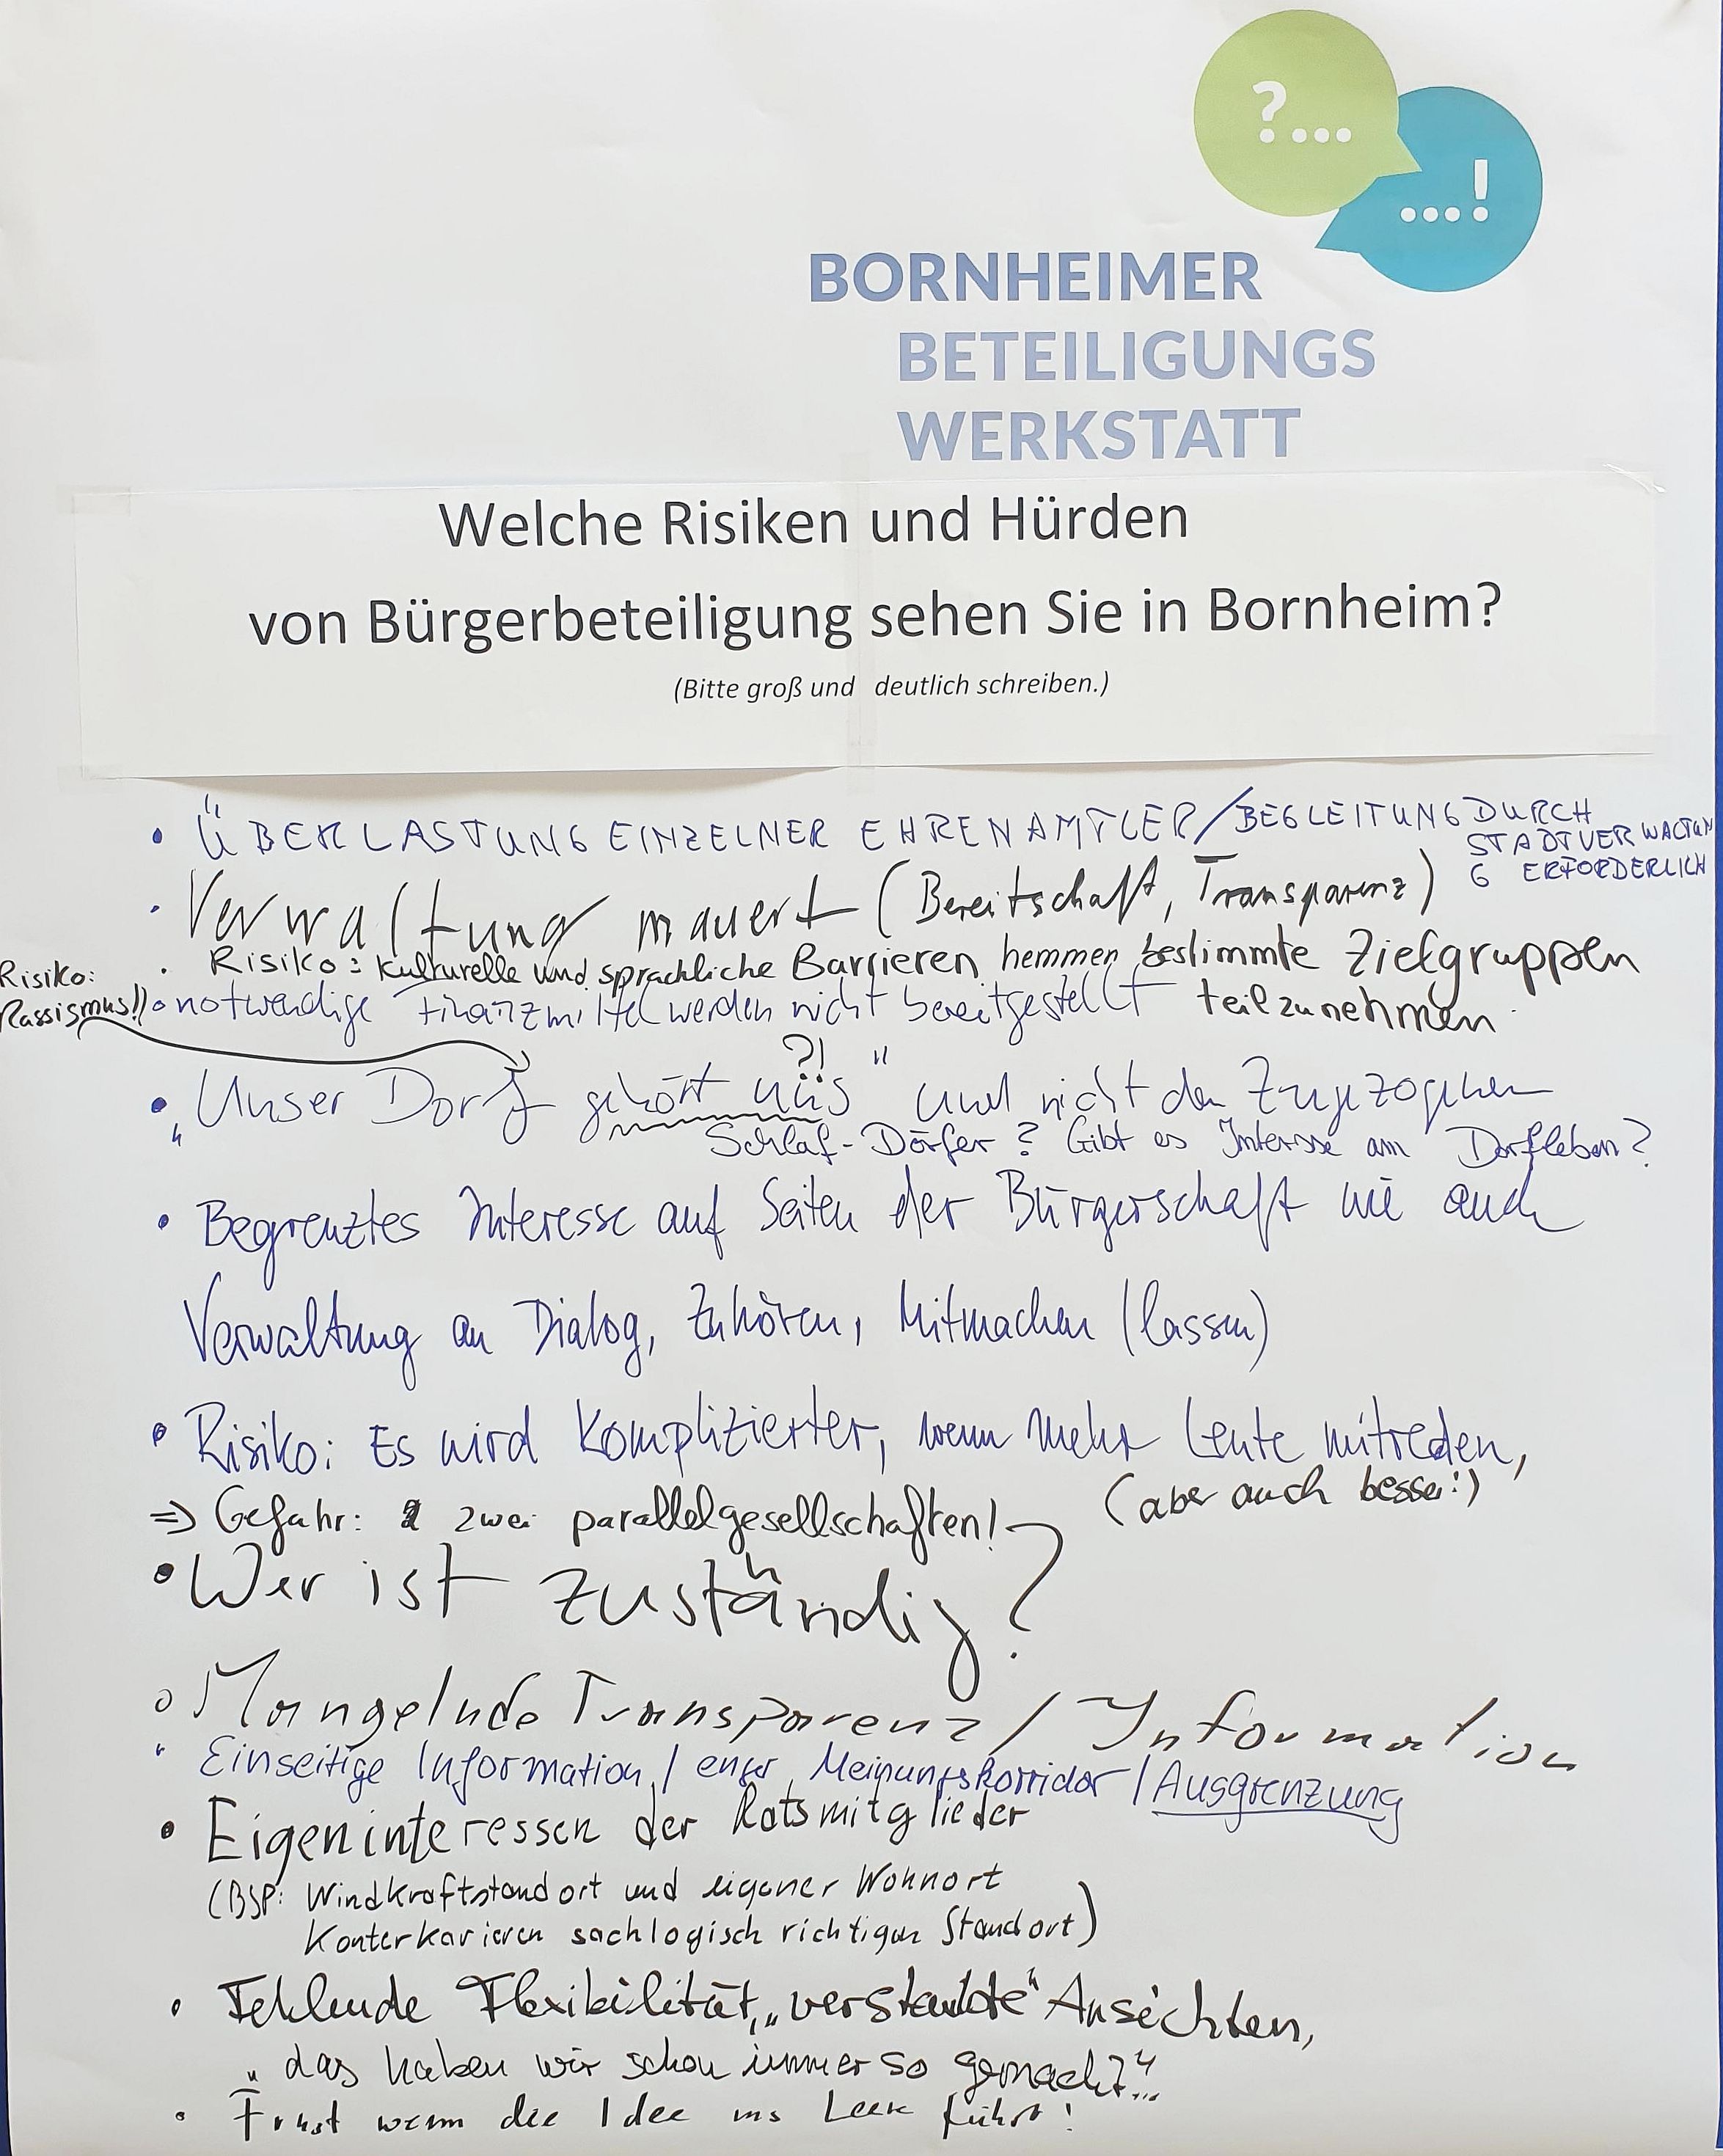 ?...
...!
BORNHEIMER
BETEILIGUNGS
WERKSTATT
Welche Risiken und Hürden
von Bürgerbeteiligung sehen Sie in Bornheim?
(Bitte groß und deutlich schreiben.)
• ÜBERLASTUNG EINZELNER EHRENAMTLER/BEGLEITUNG DURCH
STADTVERWALTUN
G ERFORDERLICH
• Verwaltung mauert (Bereitschaft, Transparenz)
• Risiko: kulturelle und sprachliche Barrieren hemmen bestimmte Zielgruppen
teilzunehmen
Risiko:
Rassismus!!
• notwendige Finanzmittel werden nicht bereitgestellt
?!
• „Unser Dorf gehört üs" und nicht den Zugezogenen
Schlaf-Dörfer? Gibt es Interesse am Dorfleben?
• Begrenztes Interesse auf Seiten der Bürgerschaft wie auch
Verwaltung an Dialog, Zuhören, Mitmachen (lassen)
• Risiko: Es wird komplizierter, wenn mehr Leute mitreden,
(aber auch besser!)
⇒ Gefahr: zwei parallelgesellschaften!
• Wer ist zuständig?
• Mangelnde Transparenz / Information
• Einseitige Information / enger Meinungskorridor / Ausgrenzung
• Eigeninteressen der Ratsmitglieder
(BSP: Windkraftstandort und eigener Wohnort
Konterkarieren sachlogisch richtigen Standort)
• Fehlende Flexibilität, „verstaubte" Ansichten,
„das haben wir schon immer so gemacht"...
• Frust wenn die Idee ins Leere führt!